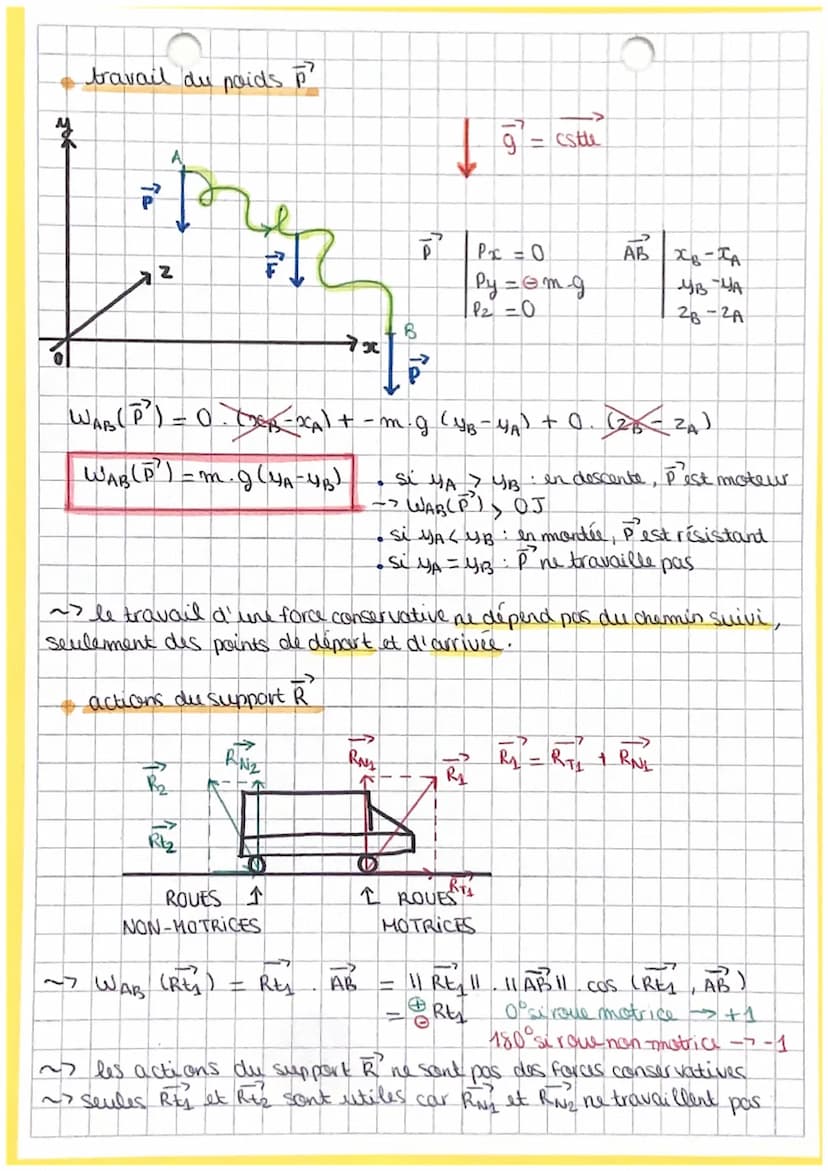 • travail du poids P⃗
y
A
g⃗ = cste⃗
P⃗
z
F⃗
P⃗ | Px = 0
Py = ⊖ m.g
Pz = 0
AB⃗ | xB - xA
yB - yA
zB - zA
B
0
x
P⃗
WAB(P⃗) = 0. (xB - xA) + - m.g (yB - yA) + 0. (zB - zA)
WAB(P⃗) = m.g (yA - yB)
• si yA > yB : en descente, P⃗ est moteur
~> WAB(P⃗) > 0J
• si yA < yB : en montée, P⃗ est résistand
• si yA = yB : P⃗ ne travaille pas
~> le travail d'une force conservative ne dépend pas du chemin suivi,
seulement des points de départ et d'arrivée.
• actions du support R⃗
R⃗2
R⃗N2
R⃗N1
R⃗1
R⃗1 = R⃗T1 + R⃗N1
R⃗t2
R⃗T1
ROUES ↑
NON-MOTRICES
↑ ROUES
MOTRICES
~> WAB (R⃗t1) = R⃗t1 . AB⃗ = || R⃗t1 || . || AB⃗ || . cos (R⃗t1, AB⃗)
= ⊕⊖ Rt1
0° si roue motrice -> +1
180° si roue non-motrice -> -1
~> les actions du support R⃗ ne sont pas des forces conservatives
~> seules R⃗t1 et R⃗t2 sont utiles car R⃗N1 et R⃗N2 ne travaillent pas